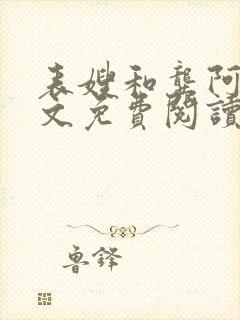 表嫂和龔阿
文免費閱讀
魯鋒